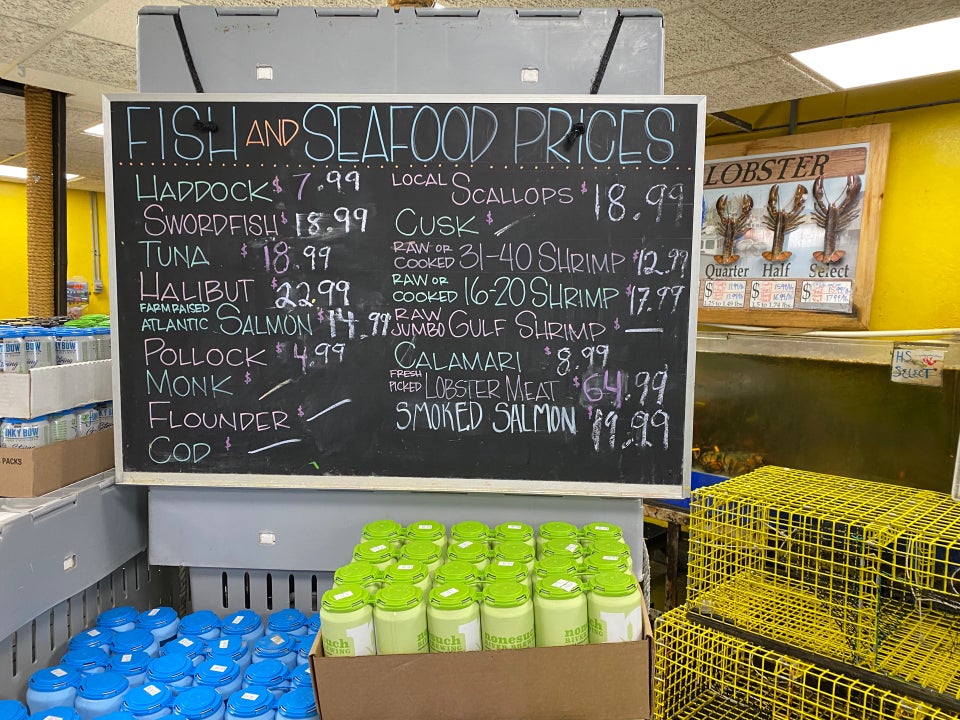 FISH AND SEAFOOD PRICES
HADDOCK $ 7.99
SWORDFISH $ 18.99
TUNA $ 18.99
HALIBUT 22.99
FARM RAISED
ATLANTIC SALMON $ 14.99
POLLOCK $ 4.99
MONK $ —
FLOUNDER $ —
COD $ —
LOCAL SCALLOPS $ 18.99
CUSK $ —
RAW OR
COOKED 31-40 SHRIMP $12.99
RAW OR
COOKED 16-20 SHRIMP $17.99
RAW
JUMBO GULF SHRIMP $ —
CALAMARI $ 8.99
FRESH
PICKED LOBSTER MEAT $64.99
SMOKED SALMON 19.99
LOBSTER
Quarter Half Select
$ $ $
1.25 to 1.49 lbs 1.5 to 1.74 lbs
HS
SELECT
BOW
INKY BOW
PACKS
nonesuch
RIVER BREWING